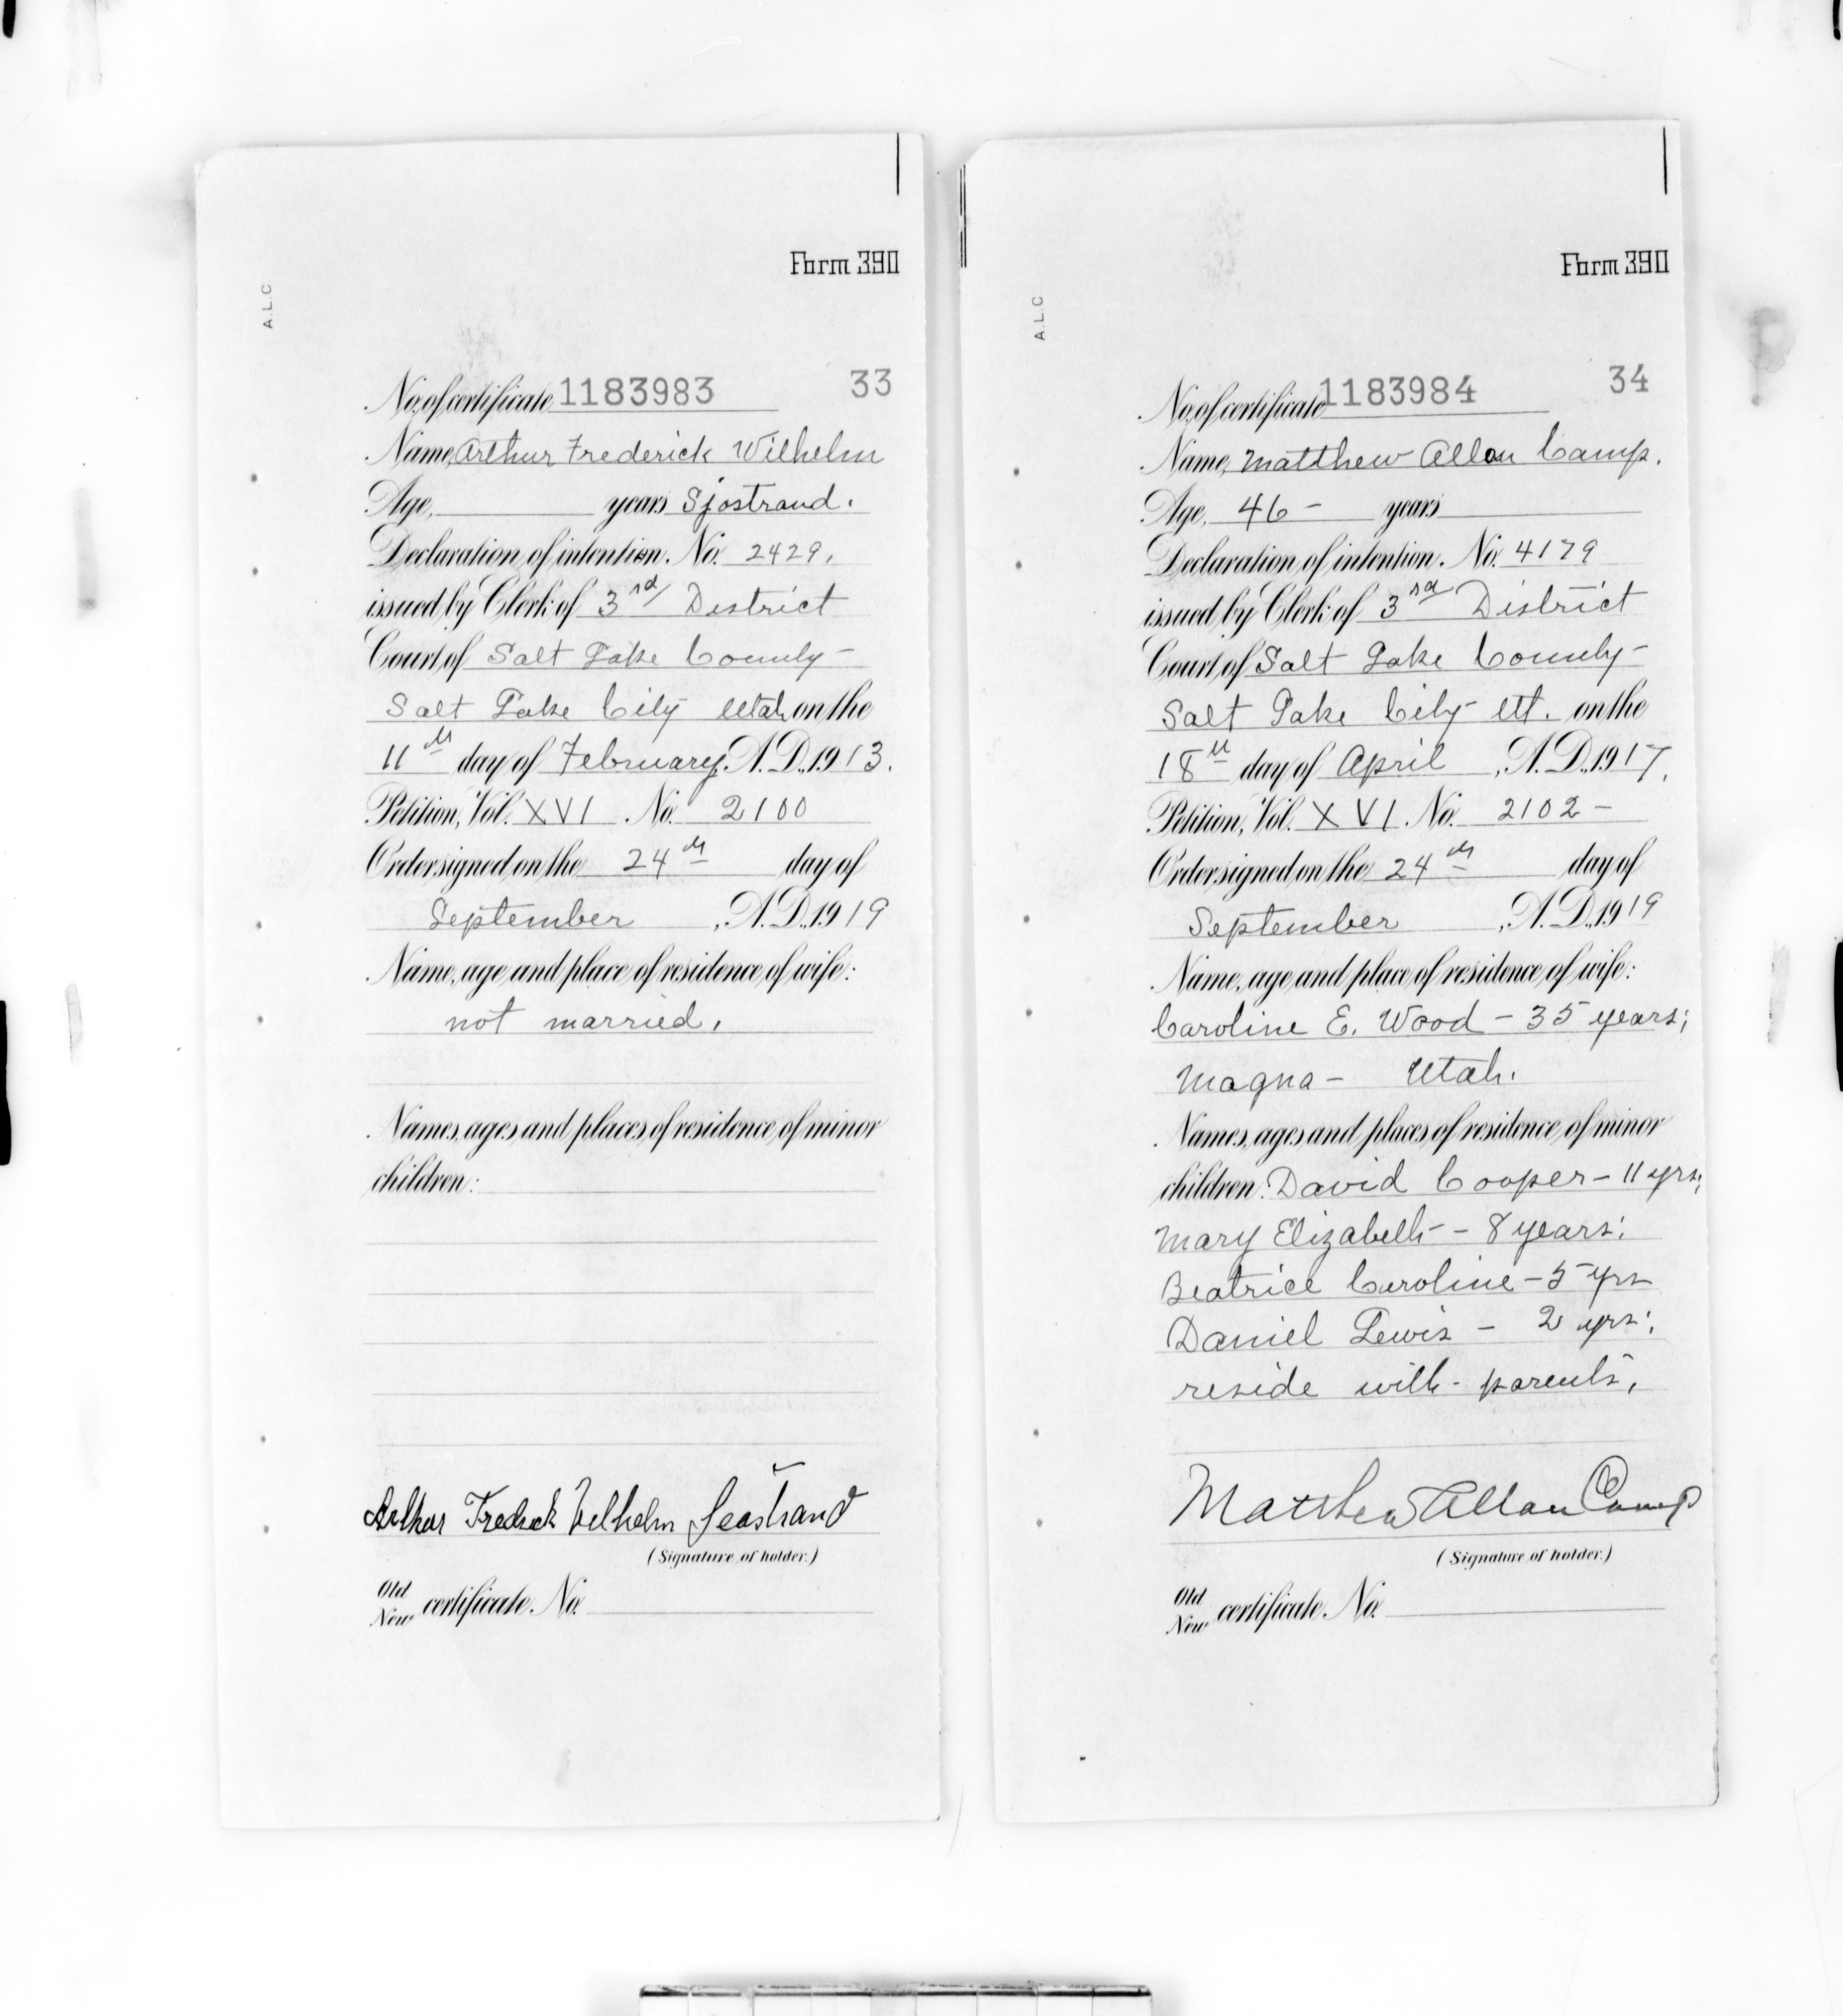 Form 390
A.L.C
No. of certificate 1183983 33
Name, Arthur Frederick Wilhelm
Age, years Sjostrand.
Declaration of intention. No. 2429.
issued by Clerk of 3rd District
Court of Salt Lake County -
Salt Lake City Utah on the
11th day of February, A.D., 1913.
Petition, Vol. XVI. No. 2100
Order signed on the 24th day of
September, A.D., 1919
Name, age and place of residence of wife:
not married.
Names, ages and places of residence of minor
children:
Arthur Fredrick Wilhelm Seastrand
(Signature of holder.)
Old
New certificate. No.
Form 390
A.L.C
No. of certificate 1183984 34
Name, Matthew Allan Camp.
Age, 46 - years
Declaration of intention. No. 4179
issued by Clerk of 3rd District
Court of Salt Lake County -
Salt Lake City - Ut. on the
18th day of April, A.D., 1917.
Petition, Vol. XVI. No. 2102 -
Order signed on the 24th day of
September, A.D., 1919
Name, age and place of residence of wife:
Caroline E. Wood - 35 years;
Magna - Utah.
Names, ages and places of residence of minor
children: David Cooper - 11 yrs;
Mary Elizabeth - 8 years;
Beatrice Caroline - 5 yrs
Daniel Lewis - 2 yrs;
reside with parents.
Matthew Allan Camp
(Signature of holder.)
Old
New certificate. No.